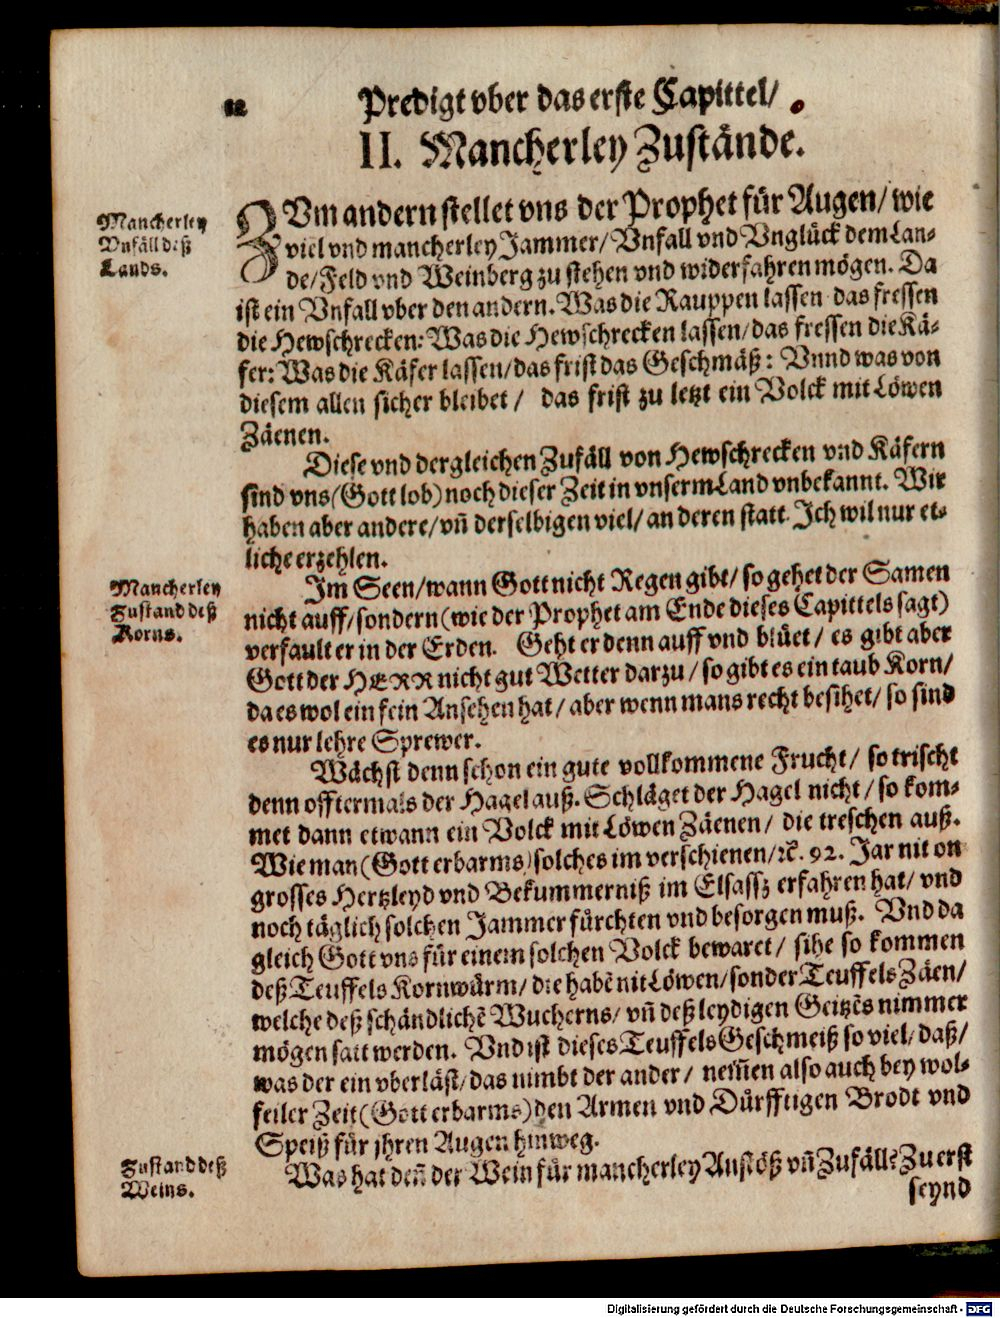 12
Predigt vber das erste Capittel/
II. Mancherley Zustände.
Mancherley
Vnfäll deß
Lands.
ZVm andern stellet vns der Prophet für Augen/ wie
viel vnd mancherley Jammer/ Vnfall vnd Vnglück dem Lan-
de/ Feld vnd Weinberg zu stehen vnd widerfahren mögen. Da
ist ein Vnfall vber den andern. Was die Rauppen lassen das fressen
die Hewschrecken: Was die Hewschrecken lassen/ das fressen die Kä-
fer: Was die Käfer lassen/ das frist das Geschmäß: Vnnd was von
diesem allen sicher bleibet/ das frist zu letzt ein Volck mit Löwen
Zäenen.
Diese vnd dergleichen Zufäll von Hewschrecken vnd Käfern
sind vns (Gott lob) noch dieser Zeit in vnserm Land vnbekannt. Wir
haben aber andere/ vñ derselbigen viel/ an deren statt. Ich wil nur et-
liche erzehlen.
Mancherley
Zustand deß
Korns.
Im Seen/ wann Gott nicht Regen gibt/ so gehet der Samen
nicht auff/ sondern (wie der Prophet am Ende dieses Capittels sagt)
verfault er in der Erden. Geht er denn auff vnd blüet/ es gibt aber
Gott der HERR nicht gut Wetter darzu/ so gibt es ein taub Korn/
da es wol ein fein Ansehen hat/ aber wenn mans recht besihet/ so sind
es nur lehre Sprewer.
Wächst denn schon ein gute vollkommene Frucht/ so trischt
denn offtermals der Hagel auß. Schläget der Hagel nicht/ so kom-
met dann etwann ein Volck mit Löwen Zäenen/ die treschen auß.
Wie man (Gott erbarms) solches im verschienen/ ꝛc. 92. Jar nit on
grosses Hertzleyd vnd Bekummerniß im Elsassz erfahren hat/ vnd
noch täglich solchen Jammer fürchten vnd besorgen muß. Vnd da
gleich Gott vns für einem solchen Volck bewaret/ sihe so kommen
deß Teuffels Kornwürm/ die habẽ nit Löwen/ sonder Teuffels Zäen/
welche deß schändlichẽ Wucherns/ vñ deß leydigen Geitzẽs nimmer
mögen satt werden. Vnd ist dieses Teuffels Geschmeiß so viel/ daß/
was der ein vberläst/ das nimbt der ander/ nem̃en also auch bey wol-
feiler Zeit (Gott erbarms) den Armen vnd Dürfftigen Brodt vnd
Speiß für jhren Augen hinweg.
Zustand deß
Weins.
Was hat deñ der Wein für mancherley Anstöß vñ Zufäll? Zu erst
seynd
Digitalisierung gefördert durch die Deutsche Forschungsgemeinschaft - DFG